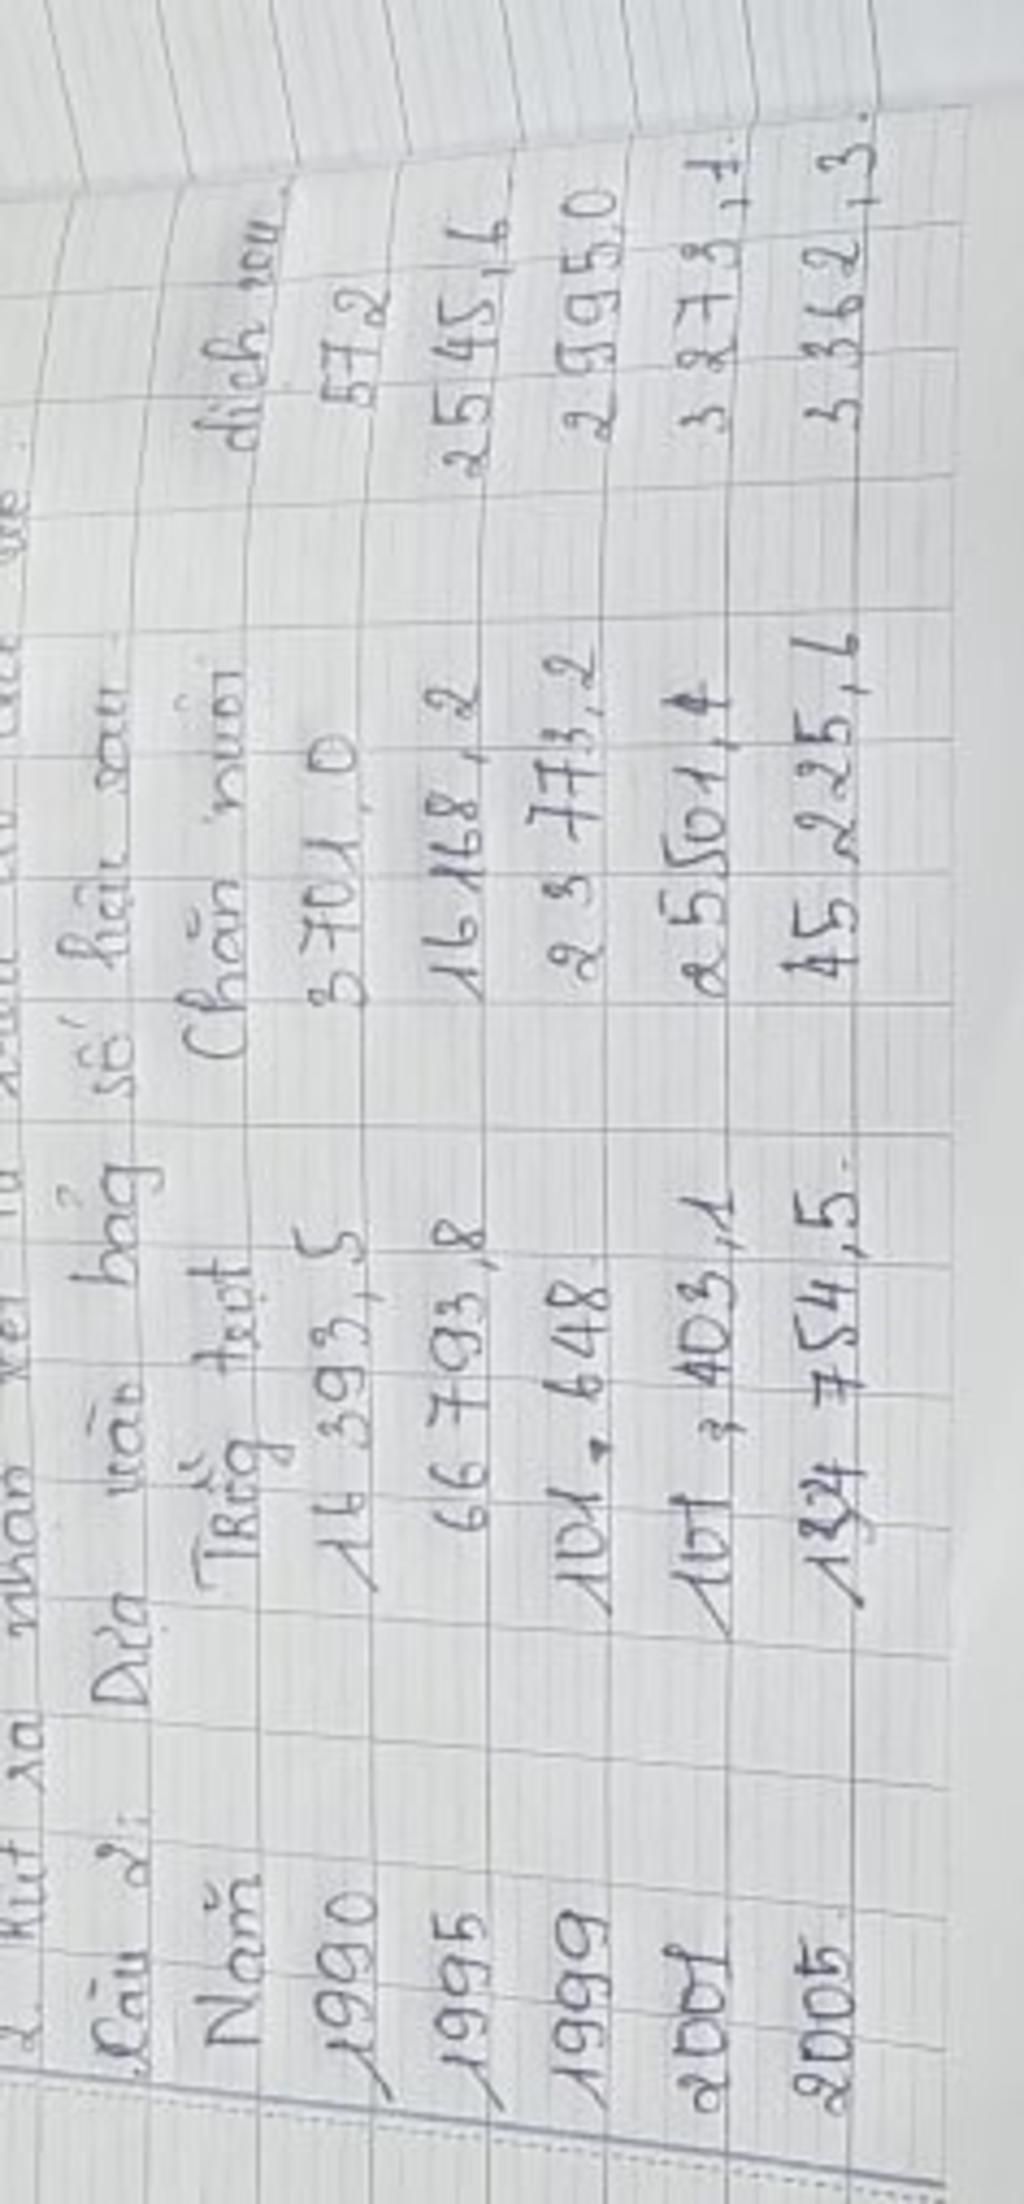 2. Rút ra nhận xét
Câu 2: Dựa vào bảg số liệu sau
Năm Trồg trọt Chăn nuôi dịch vụ.
1990 16 393,5 3701,0 572
1995 66 793,8 16 168,2 2545,6
1999 101.648 23 773,2 2995.0
2001 101 403,1 25501,4 3273,1.
2005 134 754,5. 45 225,6 3362,3.